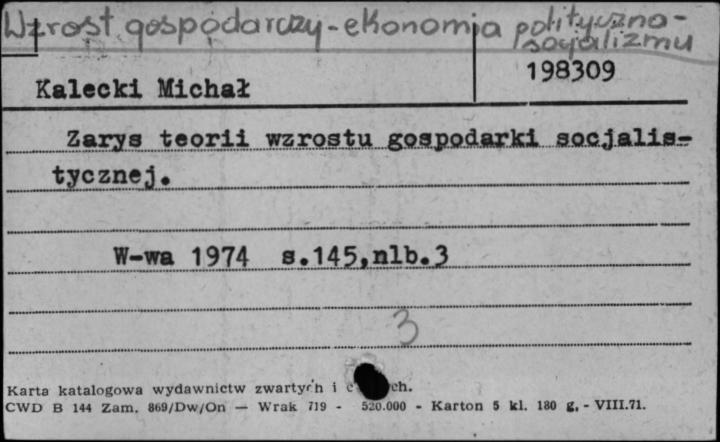 Wzrost gospodarczy - ekonomia polityczna -
socjalizmu
198309
Kalecki Michał
Zarys teorii wzrostu gospodarki socjalis-
tycznej.
W-wa 1974 s.145,nlb.3
3
Karta katalogowa wydawnictw zwartych i
CWD B 144 Zam. 869/Dw/On — Wrak 719 - 520.000 - Karton 5 kl. 180 g. - VIII.71.